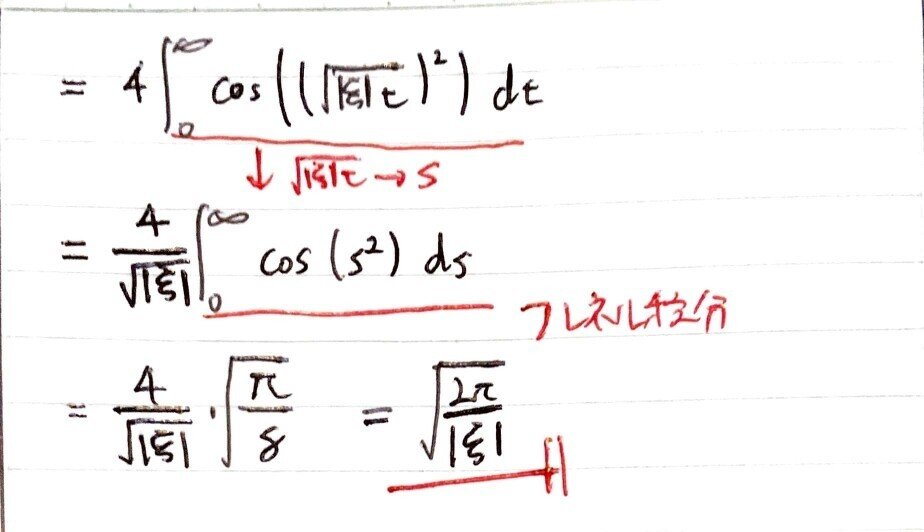 = 4∫₀^∞ cos((√|ξ| t)²) dt
↓ √|ξ| t → s
= 4/√|ξ| ∫₀^∞ cos(s²) ds
フレネル積分
= 4/√|ξ| · √(π/8) = √(2π/|ξ|)